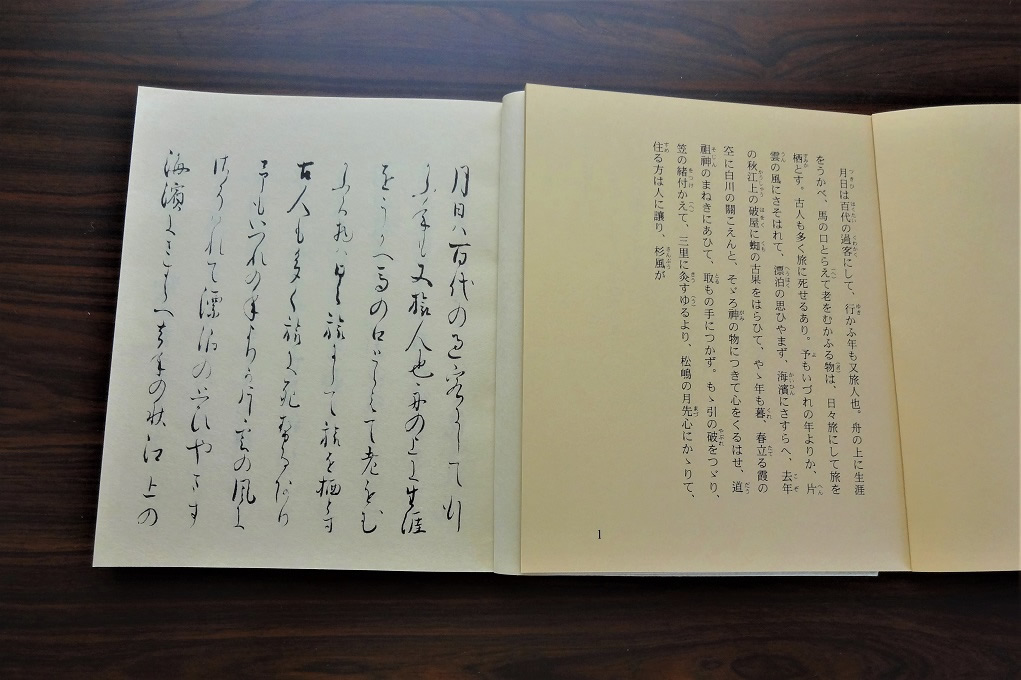 月日は百代の過客にして、行かふ年も又旅人也。舟の上に生涯
をうかべ、馬の口とらえて老をむかふる物は、日々旅にして旅を
栖とす。古人も多く旅に死せるあり。予もいづれの年よりか、片
雲の風にさそはれて、漂泊の思ひやまず、海濱にさすらへ、去年
の秋江上の破屋に蜘の古巣をはらひて、やゝ年も暮、春立る霞の
空に白川の關こえんと、そゞろ神の物につきて心をくるはせ、道
祖神のまねきにあひて、取もの手につかず。もゝ引の破をつゞり、
笠の緒付かえて、三里に灸すゆるより、松嶋の月先心にかゝりて、
住る方は人に譲り、杉風が
1
月日ハ百代の過客にして行
かふ年も又旅人也舟の上に生涯
をうかへ馬の口とらえて老をむ
かふる物ハ日々旅にして旅を栖とす
古人も多く旅に死せるあり
予もいつれの年よりか片雲の風に
さそはれて漂泊の思ひやます
海濱にさすらへ去年の秋江上の